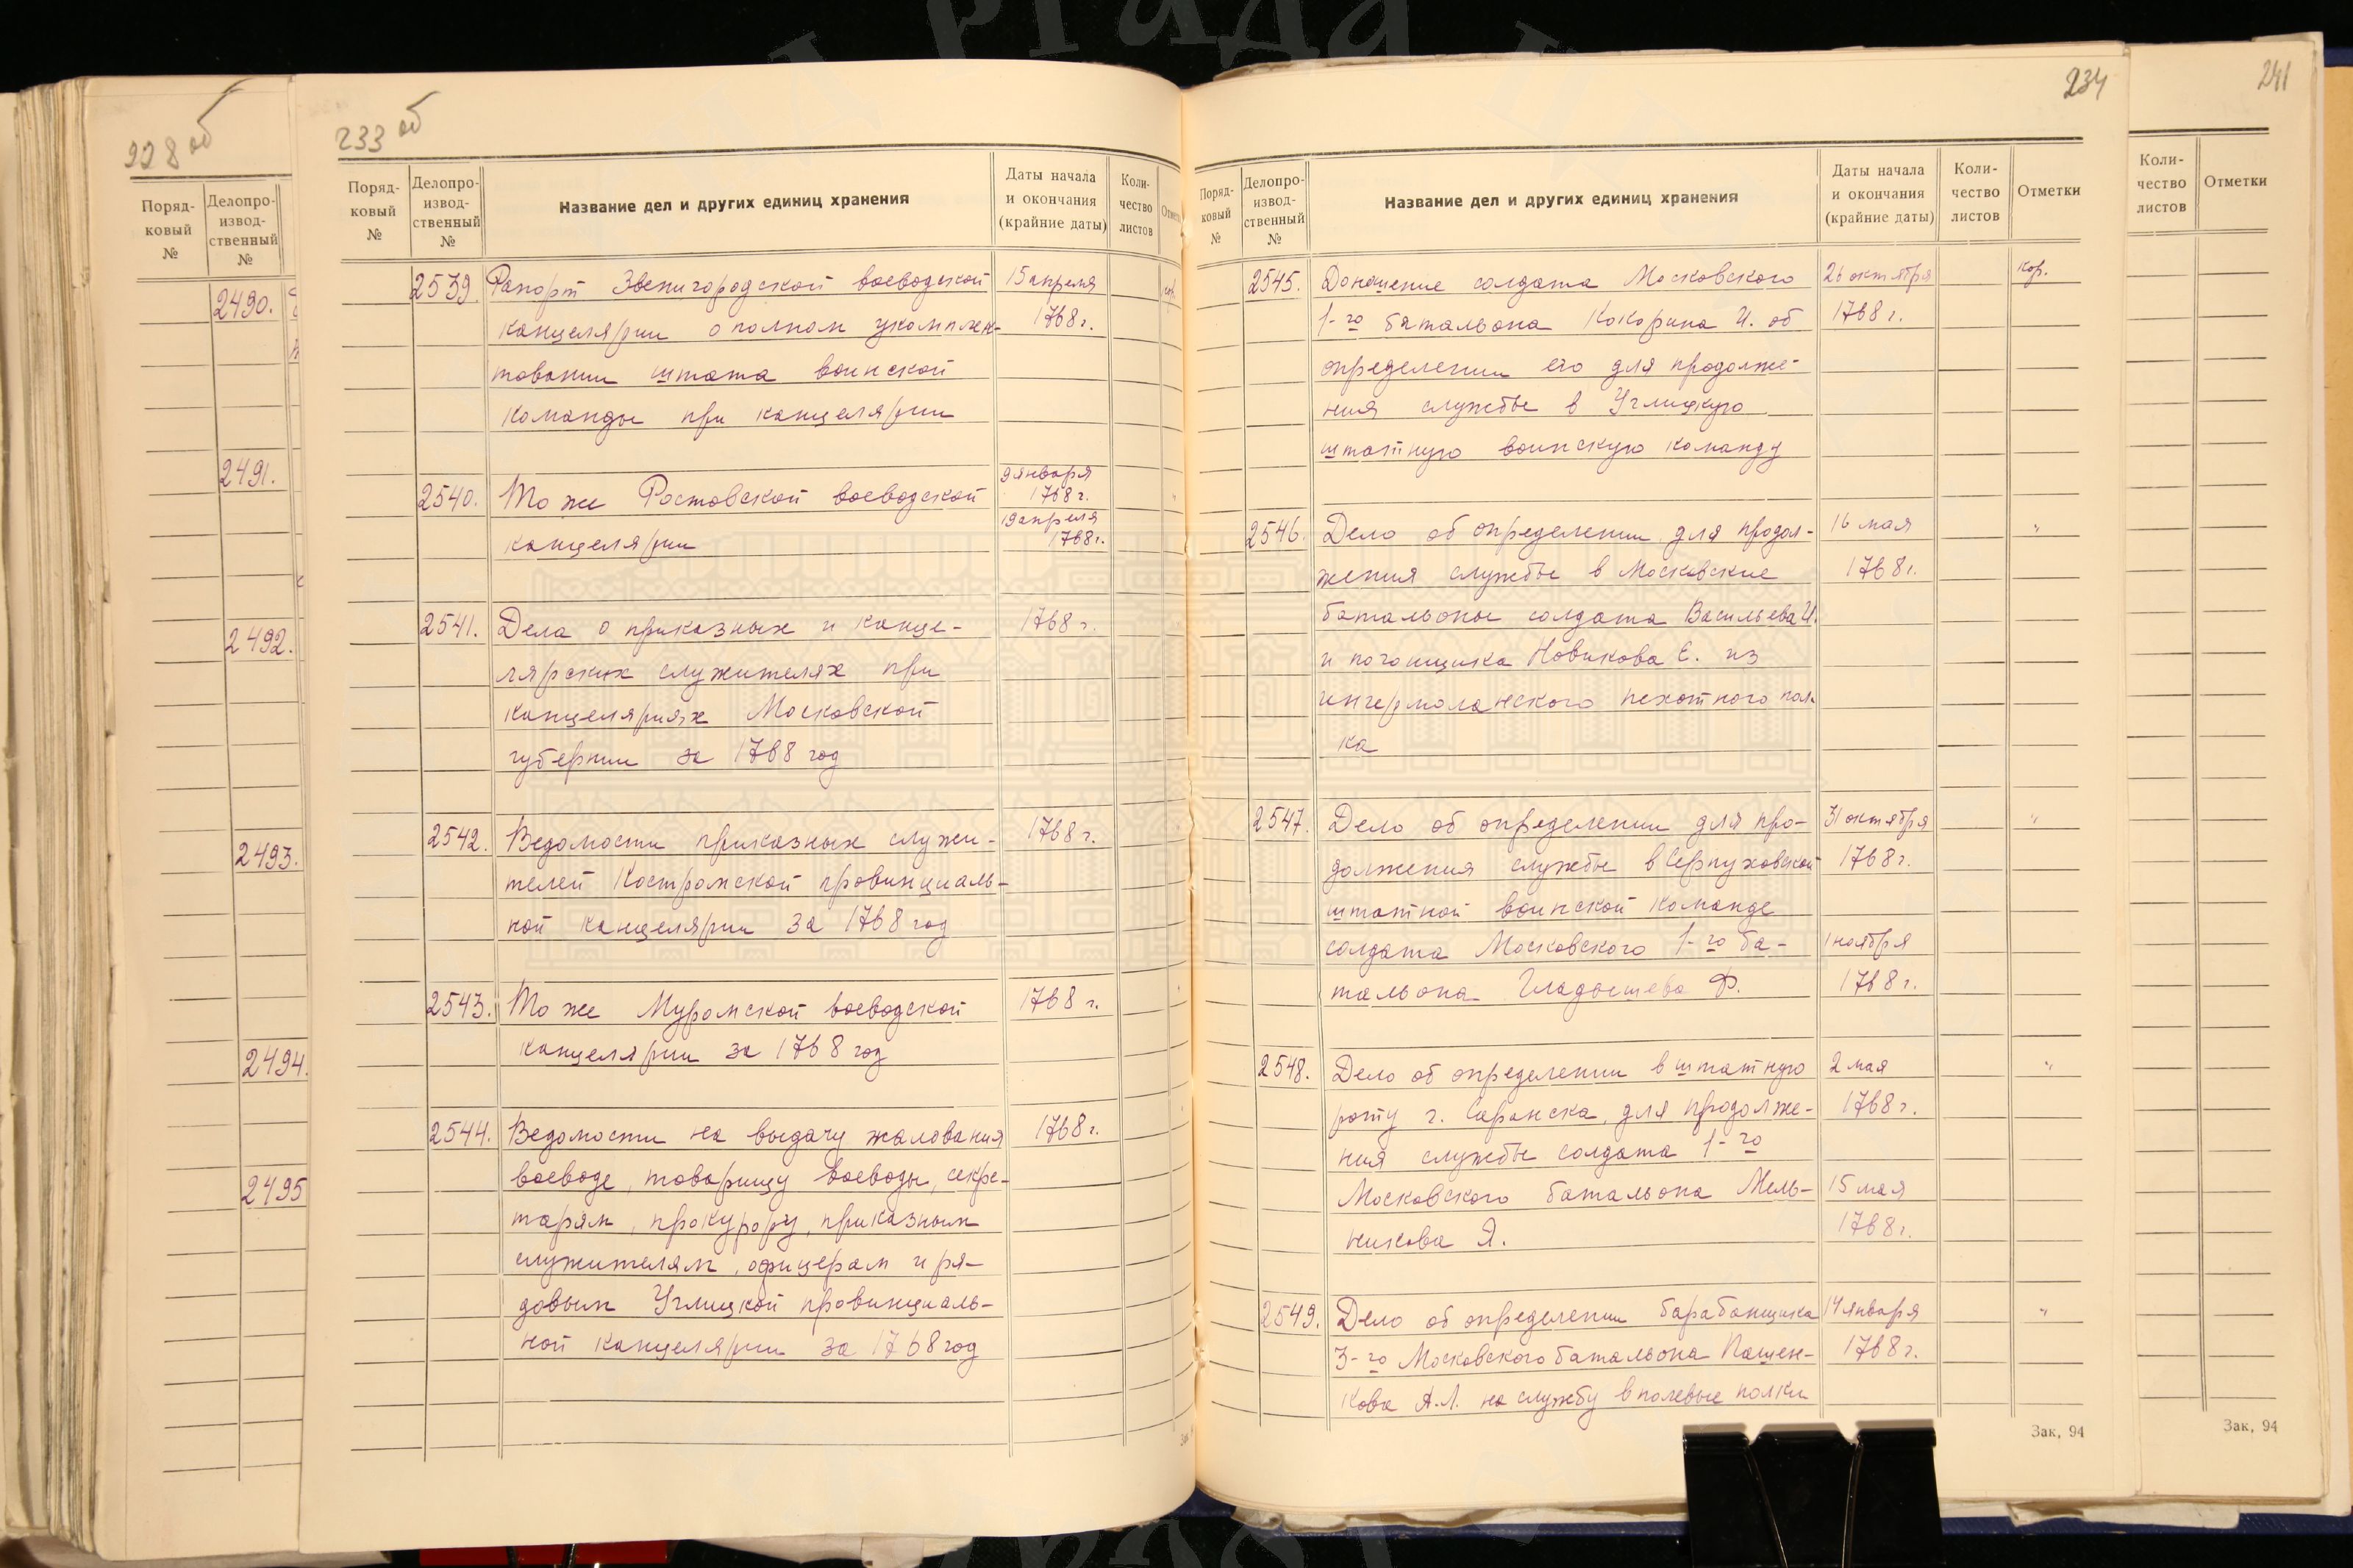 228 об
Поряд-
ковый
№
Делопро-
извод-
ственный
№
2490.
2491.
2492.
2493.
2494.
2495
233 об
Поряд-
ковый
№
Делопро-
извод-
ственный
№
Название дел и других единиц хранения
Даты начала
и окончания
(крайние даты)
Коли-
чество
листов
2539. Рапорт Звенигородской воеводской 15 апреля
канцелярии о полном укомплек- 1768 г.
товании штата воинской
команды при канцелярии
2540. То же Ростовской воеводской 9 января 1768 г.
канцелярии 19 апреля 1768 г.
2541. Дела о приказных и канце- 1768 г.
лярских служителях при
канцеляриях Московской
губернии за 1768 год
2542. Ведомости приказных служи- 1768 г.
телей Костромской провинциаль-
ной канцелярии за 1768 год
2543. То же Муромской воеводской 1768 г.
канцелярии за 1768 год
2544. Ведомости на выдачу жалования 1768 г.
воеводе, товарищу воеводы, секре-
тарям, прокурору, приказным
служителям, офицерам и ря-
довым Углицкой провинциаль-
ной канцелярии за 1768 год
234
Поряд-
ковый
№
Делопро-
извод-
ственный
№
Название дел и других единиц хранения
Даты начала
и окончания
(крайние даты)
Коли-
чество
листов
Отметки
2545. Доношение солдата Московского 26 октября кор.
1-го батальона Кокорина И. об 1768 г.
определении его для продолже-
ния службы в Углицкую
штатную воинскую команду
2546. Дело об определении для продол- 16 мая "
жения службы в Московские 1768 г.
батальоны солдата Васильева И.
и погонщика Новикова Е. из
ингермоланского пехотного пол-
ка
2547. Дело об определении для про- 31 октября "
должения службы в Серпуховской 1768 г.
штатной воинской команде
солдата Московского 1-го ба- 1 ноября
тальона Гладышева Ф. 1768 г.
2548. Дело об определении в штатную 2 мая "
роту г. Саранска, для продолже- 1768 г.
ния службы солдата 1-го
Московского батальона Мель- 15 мая
никова Я. 1768 г.
2549. Дело об определении барабанщика 14 января "
3-го Московского батальона Пащен- 1768 г.
кова А.Л. на службу в полевые полки
Зак, 94
241
Коли-
чество
листов
Отметки
Зак, 94